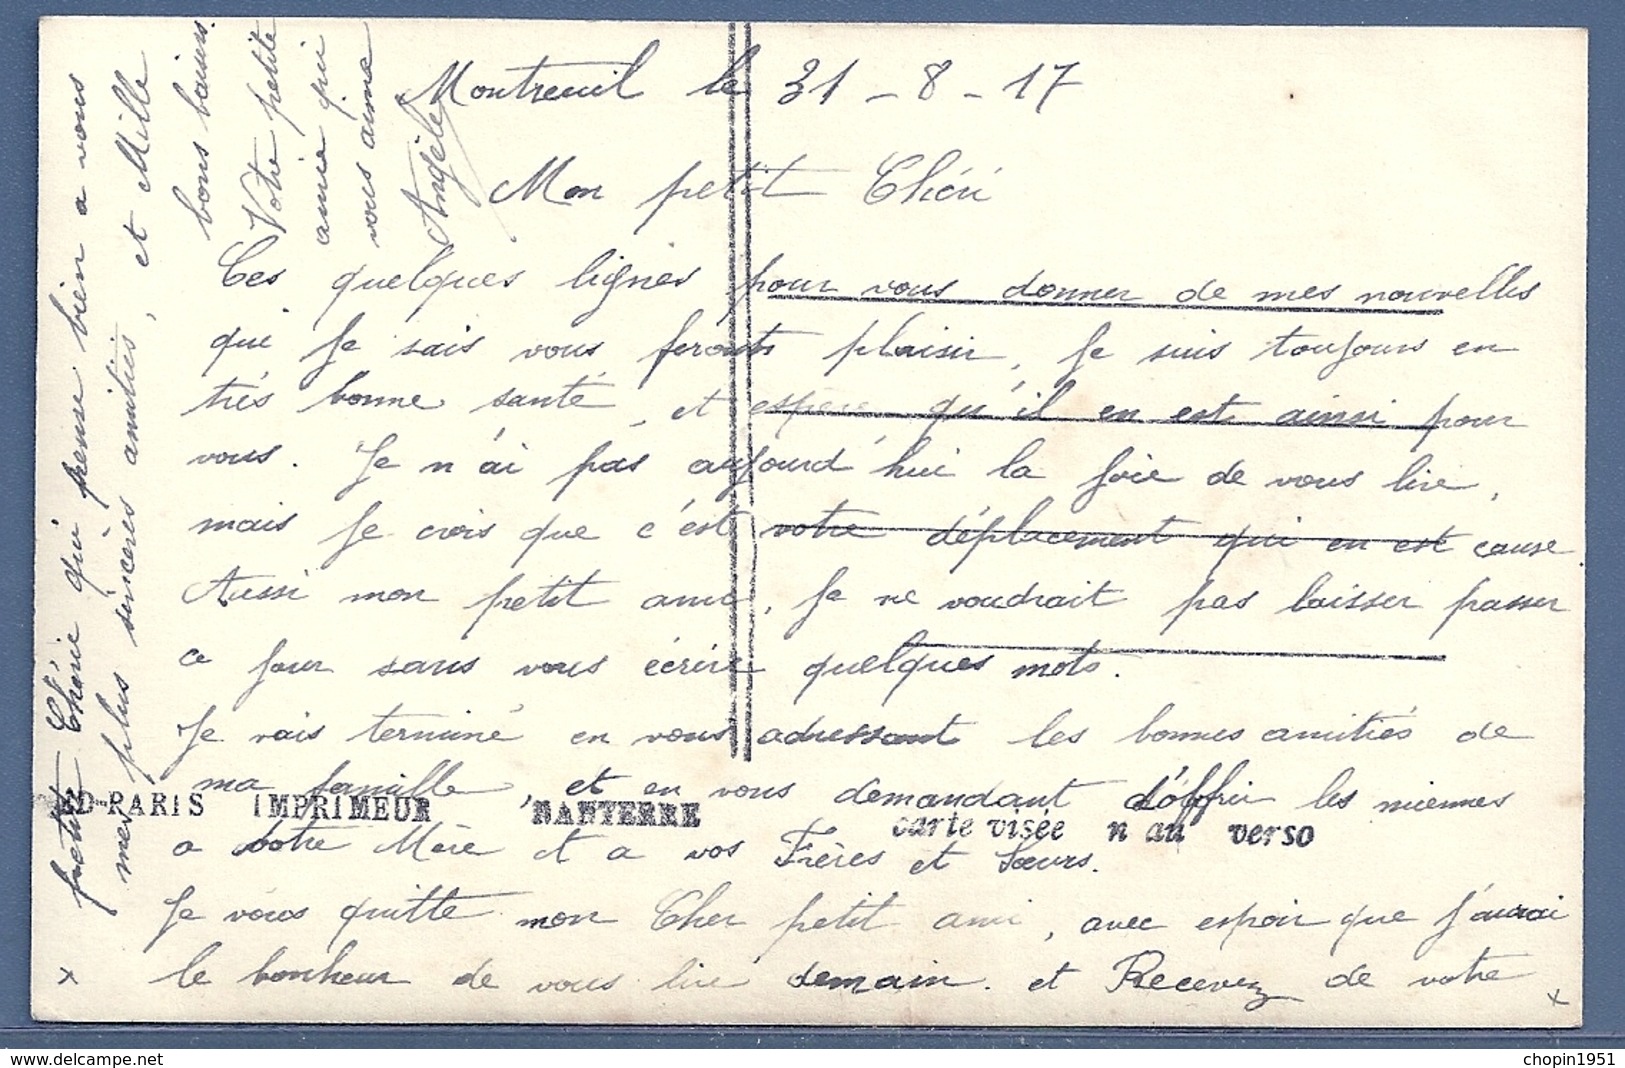 Montreuil le 31 - 8 - 17
Mon petit Chéri
Ces quelques lignes pour vous donner de mes nouvelles
qui je sais vous feronts plaisir, Je suis toujours en
très bonne santé, et espère qu'il en est ainsi pour
vous. Je n'ai pas aujourd'hui la joie de vous lire,
mais je crois que c'est votre déplacement qui en est cause
Aussi mon petit ami, je ne voudrait pas laisser passer
ce jour sans vous écrire quelques mots.
Je vais terminé en vous adressant les bonnes amitiés de
ma famille, et en vous demandant d'offrir les miennes
a votre Mère et a vos Frères et Sœurs.
Je vous quitte mon Cher petit ami, avec espoir que j'aurai
le bonheur de vous lire demain. et Recevez de votre
x
x
petite Chérie qui pense bien a vous
mes plus sincères amitiés, et Mille
bons baisers.
Votre petite
amie qui
vous aime
Angèle
D-PARIS IMPRIMEUR NANTERRE
carte visée n au verso
chopin1951